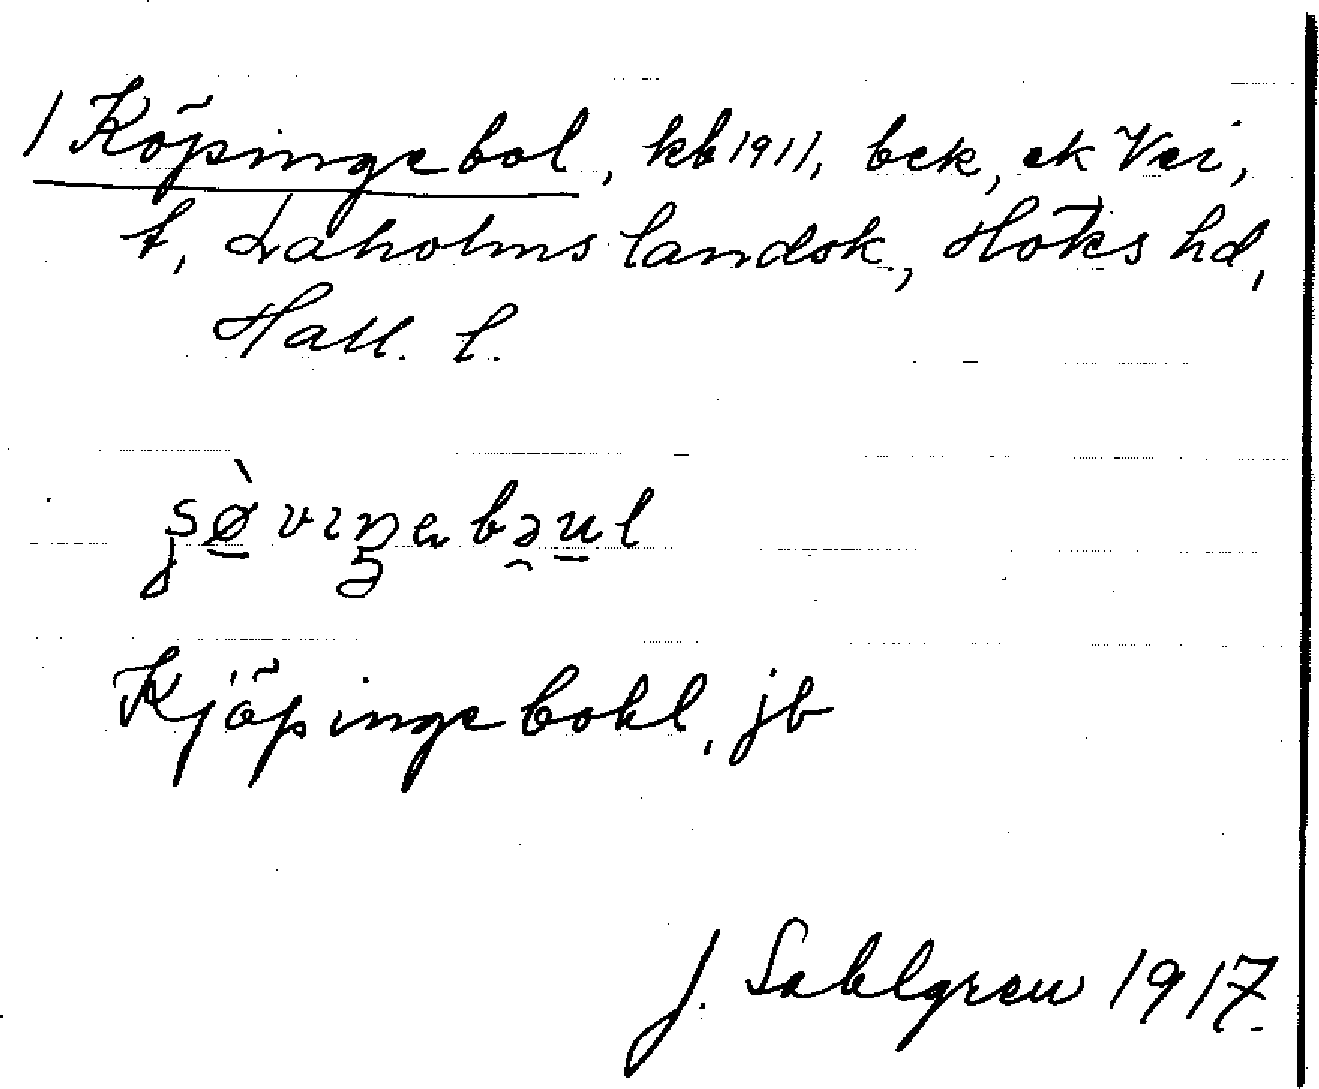 1 Köpingebol, kb 1911, bek, ek Vei,
t, Laholms landsk, Höks hd,
Hall. l.
Kjöpingebohl, jb
J. Sahlgren 1917.